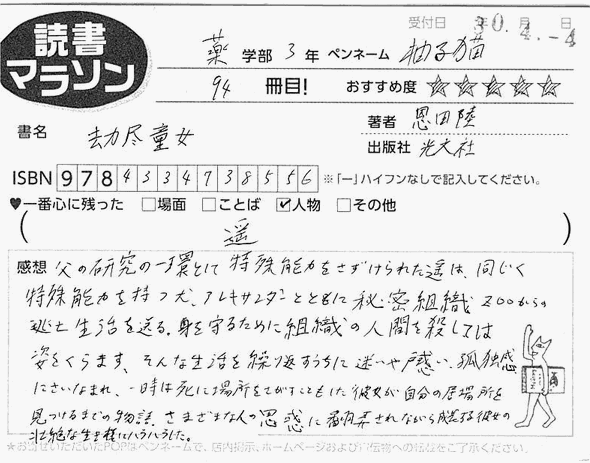 読書
マラソン
受付日 年30.4.-4月 日
薬 学部 3 年 ペンネーム 柚子猫
94 冊目! おすすめ度 ☆☆☆☆☆
書名 劫尽童女
著者 恩田陸
出版社 光文社
ISBN 9784334738556 ※「ー」ハイフンなしで記入してください。
♥一番心に残った □場面 □ことば ☑人物 □その他
( 遥 )
感想 父の研究の一環として特殊能力をさずけられた遥は、同じく
特殊能力を持つ犬、アレキサンダーとともに秘密組織ZOOからの
逃亡生活を送る。身を守るために組織の人間を殺しては
姿をくらます、そんな生活を繰り返すうちに迷いや戸惑い、孤独感
にさいなまれ、一時は死に場所をさがすこともした彼女が自分の居場所を
見つけるまでの物語。さまざまな人の思惑に翻弄されながら成長する彼女の
壮絶な生き様にハラハラした。
*お寄せいただいたPOPはペンネームで、店内掲示、ホームページおよび